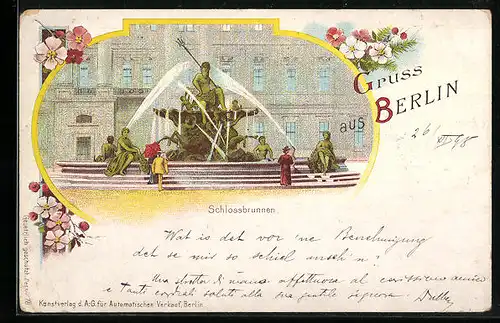 Gruss
aus
BERLIN
26 XI 98
Schlossbrunnen.
Wat is det vor 'ne Benehmigung
det se mir so schiel anseh'n!
Una stretta di mano affettuosa al carissimo amico
e tanti cordiali saluti alla sua gentile signora.
Kunstverlag d. A.G. für Automatischen Verkauf, Berlin.
Gesetzlich geschützt